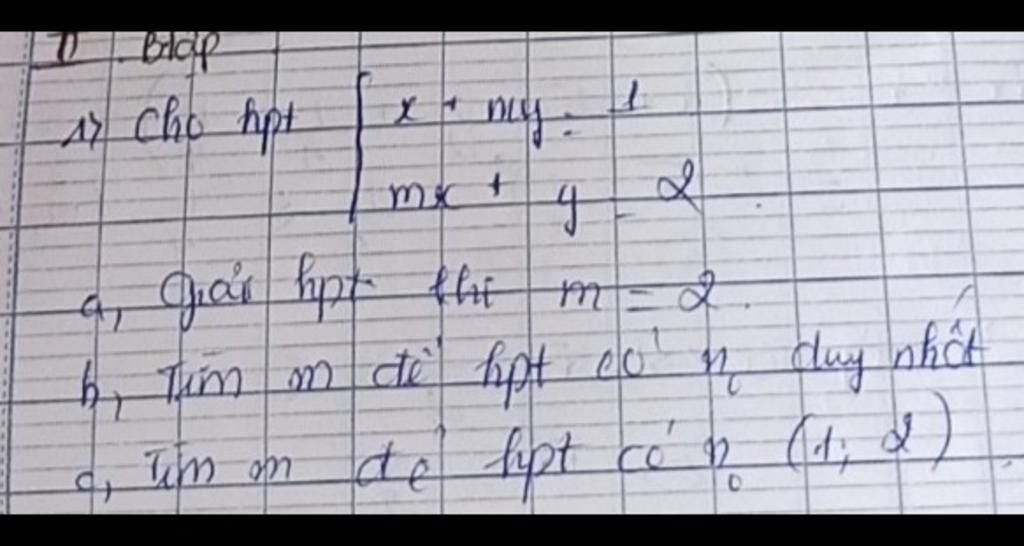 II. Btập
1) Cho hpt { x + my = 1
mx + y = 2
a, Giải hpt khi m = 2.
b, Tìm m để hpt có n0 duy nhất
c, Tìm m để hpt có n0 (1; 2)